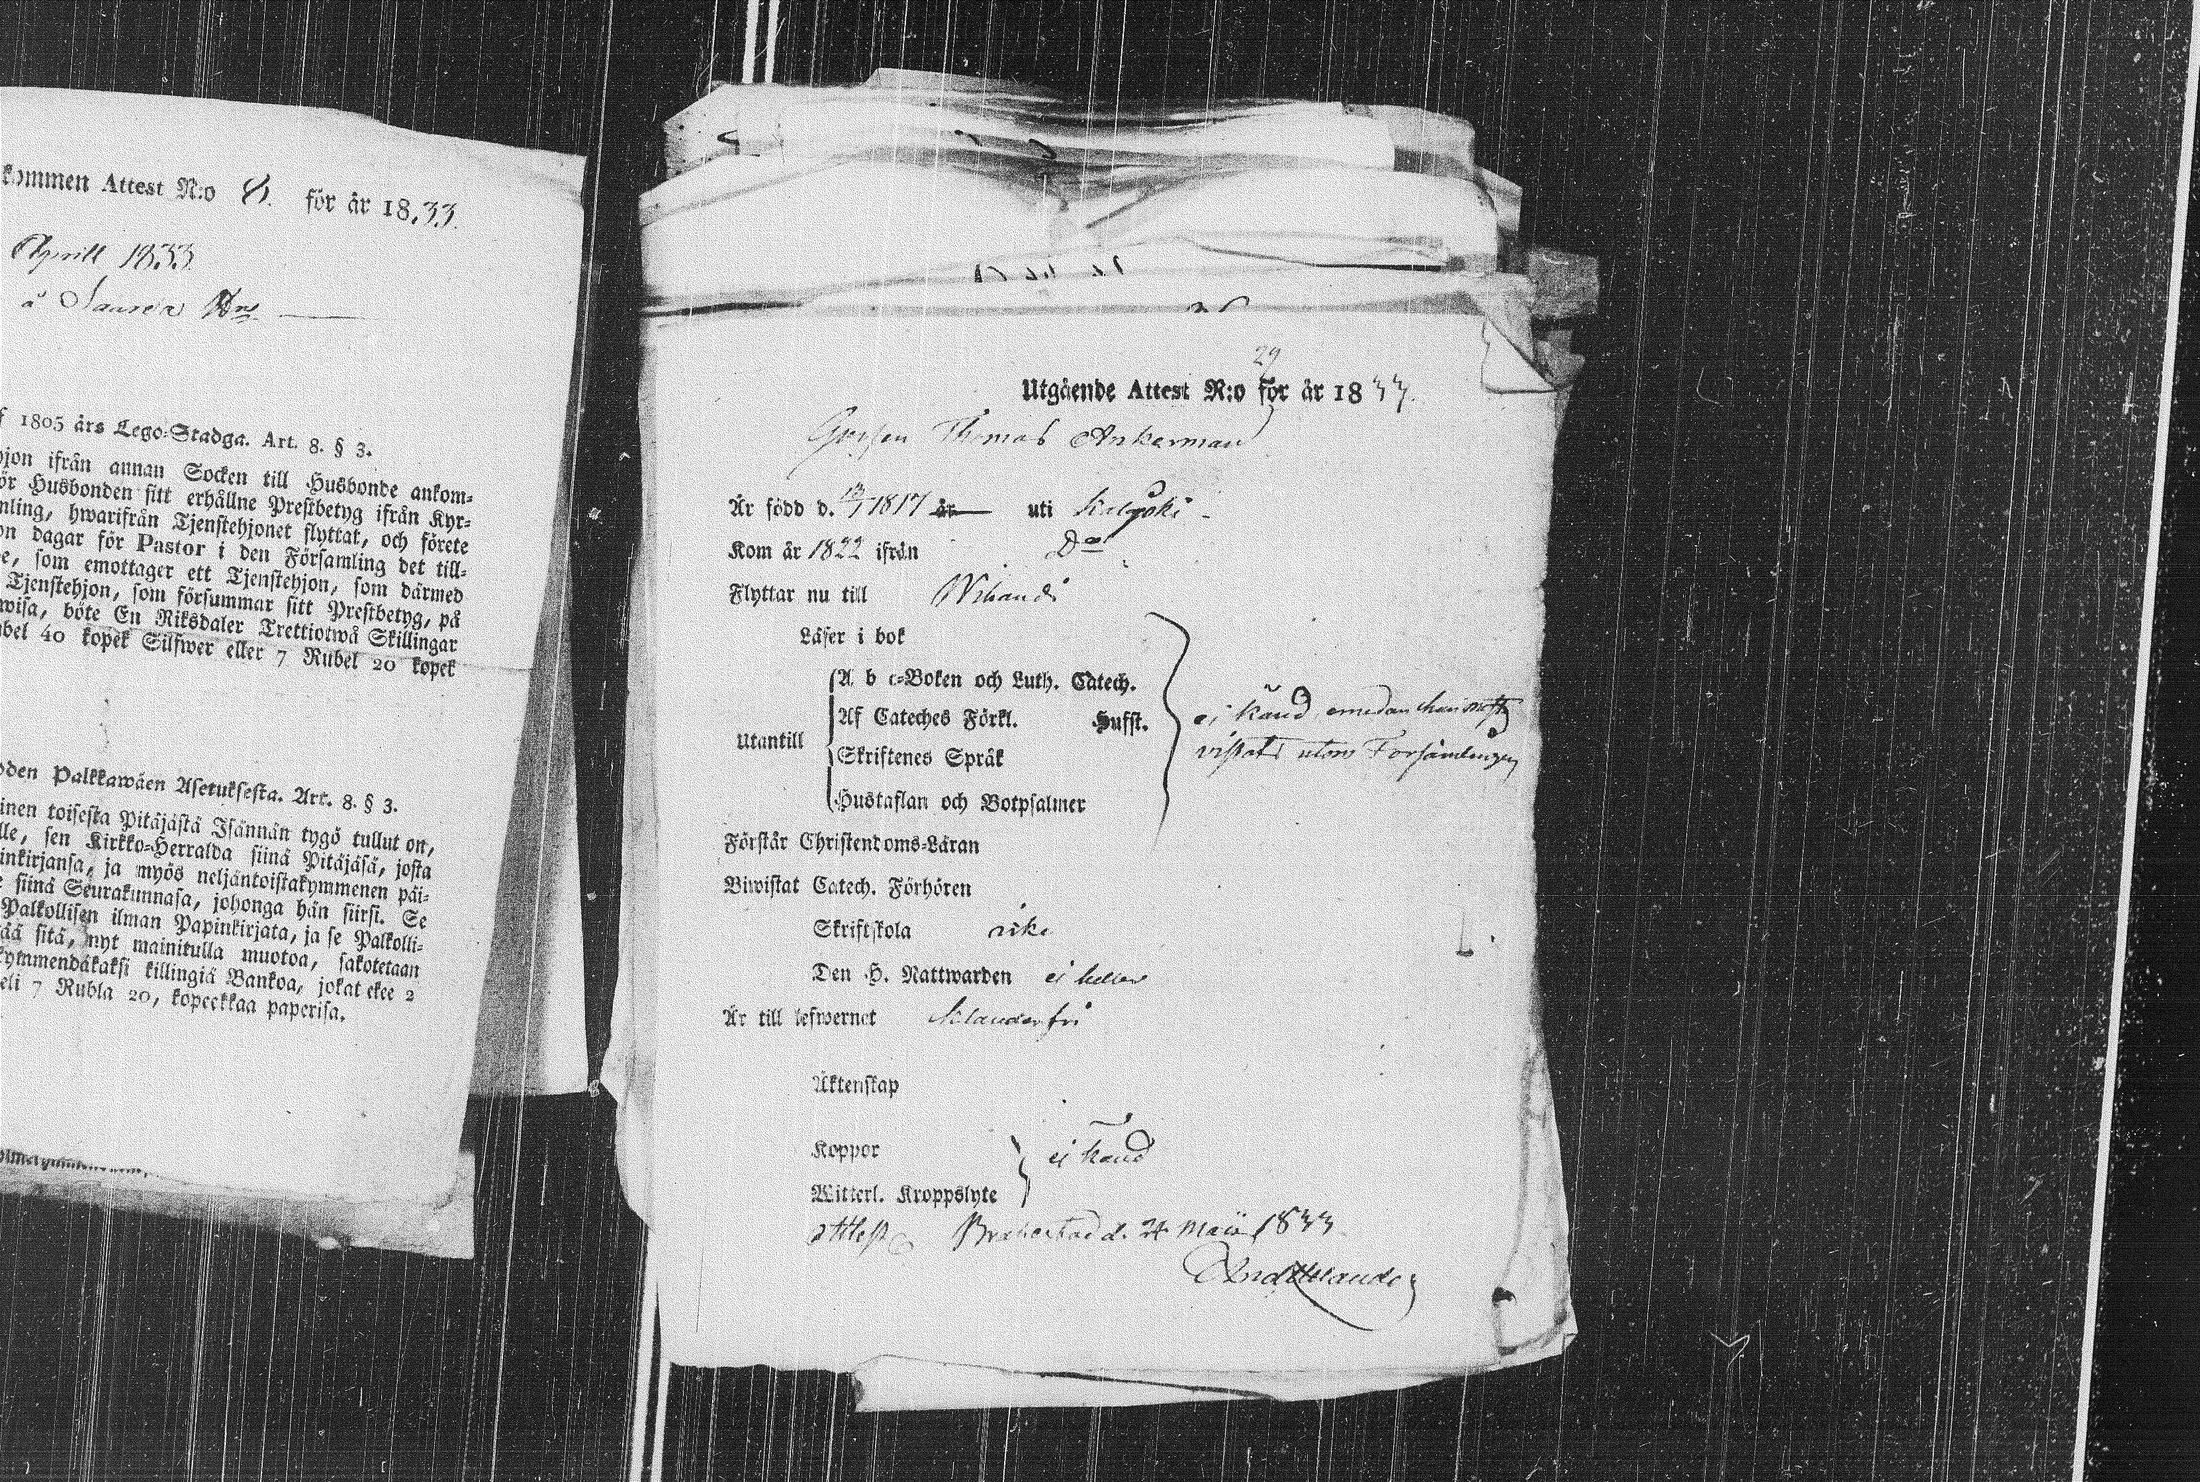 kommen Attest N:o 8. för år 1833.
Aprill 1833
å
1805 års Lego-Stadga. Art. 8. § 3.
hjon ifrån annan Socken till Husbonde ankom-
ör Husbonden sitt erhållne Prestbetyg ifrån Kyr-
mling, hwarifrån Tjenstehjonet flyttat, och förete
on dagar för Pastor i den Församling det till-
e, som emottager ett Tjenstehjon, som därmed
Tjenstehjon, som försummar sitt Prestbetyg, på
wisa, böte En Riksdaler Trettiotwå Skillingar
ubel 40 kopek Silfwer eller 7 Rubel 20 kopek
oden Palkkawäen Asetuksesta. Art. 8. § 3.
inen toisesta Pitäjästä Isännän tygö tullut on,
lle, sen Kirkko-Herralda siinä Pitäjäsä, josta
inkirjansa, ja myös neljäntoistakymmenen päi-
e siinä Seurakunnasa, johonga hän siirsi. Se
Palkollisen ilman Papinkirjata, ja se Palkolli-
ää sitä, nyt mainitulla muotoa, sakotetaan
kymmendäkaksi killingiä Bankoa, jokat ekee 2
eli 7 Rubla 20, kopeekkaa paperisa.
29
Utgående Attest N:o för år 1833.
Gossen Thomas Ankerman
Är född d. 1817 år uti Kalajoki
Kom år 1822 ifrån Do
Flyttar nu till Wihandi
Läser i bok
A b c-Boken och Luth. Catech.
Af Cateches Förkl. Hufst. ej känd, emedan han mest
Utantill
Skriftenes Språk vistats utom Församlingen
Hustaflan och Botpsalmer
Förstår Christendoms-Läran
Biwistat Catech. Förhören
Skriftskola icke
Den H. Nattwarden ei heller
Är till lefwernet klanderfri
Äktenskap
Koppor ej känd
Witterl. Kroppslyte
attest. Brahestad d. 24 Maii 1833